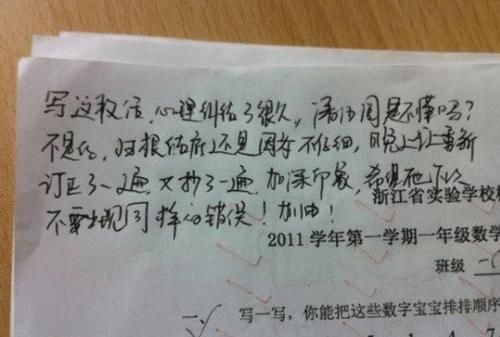 写这段话，心理纠结了很久，语法问是不懂吗？
不是的，归根结底还是因为不仔细，晚上让重新
订正了一遍又抄了一遍，加深印象，希望他下次
不要出现同样的错误！加油！
浙江省实验学校
2011 学年第一学期一年级数学
班级
一、 写一写，你能把这些数字宝宝排排顺序